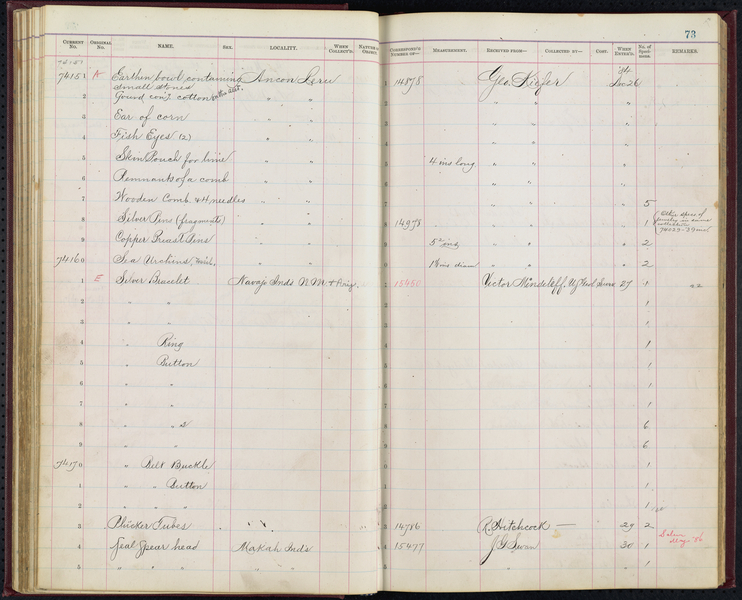 73
CURRENT No. ORIGINAL No. NAME. SEX. LOCALITY. WHEN COLLECT'D. NATURE OF OBJECT. CORRESPOND'G NUMBER OF— MEASUREMENT. RECEIVED FROM— COLLECTED BY— COST. WHEN ENTER'D. No. of Specimens. REMARKS.
74151
74151 A Earthen bowl, containing Ancon Peru 14878 Geo. Kiefer Dec 26
small stones
2 Gourd con'g cotton " " " "
3 Ear of corn " " " " "
4 Fish Eyes (2) " " " " "
5 Skin Pouch for lime " " 4 ins. long " " "
6 Remnants of a comb " " " " "
7 Wooden Comb & 4 needles " " " " " 5
8 Silver Pins (fragments) " " 14978 " " " 1
74029-39
9 Copper Breast Pins " " 5½ ins " " " 2
74160 Sea Urchins " " diam " " " 2
1 E Silver Bracelet Navajo Inds N.M. & Ariz. 15450 Victor Mindeleff, 27 1
2 " " 1
3 " " 1
4 " Ring 1
5 " Button 1
6 " " 1
7 " " 1
8 " " 6
9 " " 6
74170 " Belt Buckle 1
1 " " Button 1
2 " " " 1
3 Plucker Tubes " " 14786 R. Hitchcock — 29 2
4 Seal Spear head Makah Inds 15477 J G Swan 30 1
" " " " " " " 1